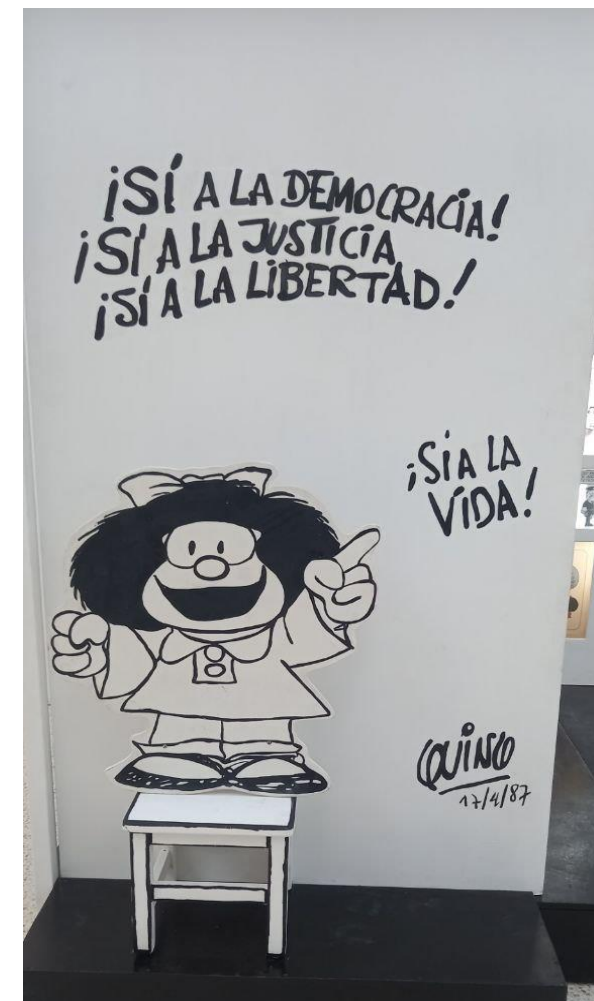 ¡SÍ A LA DEMOCRACIA!
¡SÍ A LA JUSTICIA
¡SÍ A LA LIBERTAD!
¡SÍ A LA
VIDA!
QUINO
17/4/87